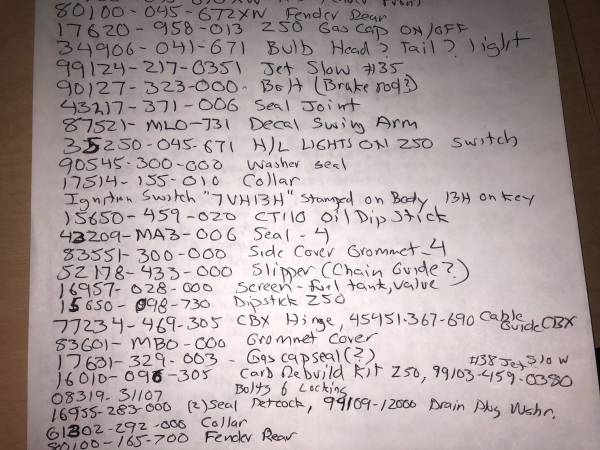 80100-045-672XW Fender Rear
17620-958-013 Z50 Gas Cap ON/OFF
34906-041-671 Bulb Head? Tail? light
99124-217-0351 Jet Slow #35
90127-323-000- Bolt (Brake rod?)
43217-371-006 Seal Joint
87521-ML0-731 Decal Swing Arm
35250-045-671 H/L LIGHTS ON Z50 Switch
90545-300-000 Washer Seal
17514-155-010 Collar
Ignition Switch "7VH13H" Stamped on Body 13H on key
15650-459-020 CT110 Oil Dip Stick
43209-MA3-006 Seal-4
83551-300-000 Side Cover Grommet-4
52178-433-000 Slipper (Chain Guide?)
16957-028-000 Screen-fuel tank, valve
15650-098-730 Dipstick Z50
77234-469-305 CBX Hinge, 45451-367-690 Cable Guide CBX
83601-MB0-000 Grommet Cover
17631-329-003 - Gas cap seal (?) #38 Jet Slow
16010-096-305 Carb Rebuild Kit Z50, 99103-459-0380
08319-31107 Bolts 6 Locking
16955-283-000 (2) Seal Petcock, 94109-12000 Drain Plug Wshr.
61302-292-000 Collar
80100-165-700 Fender Rear